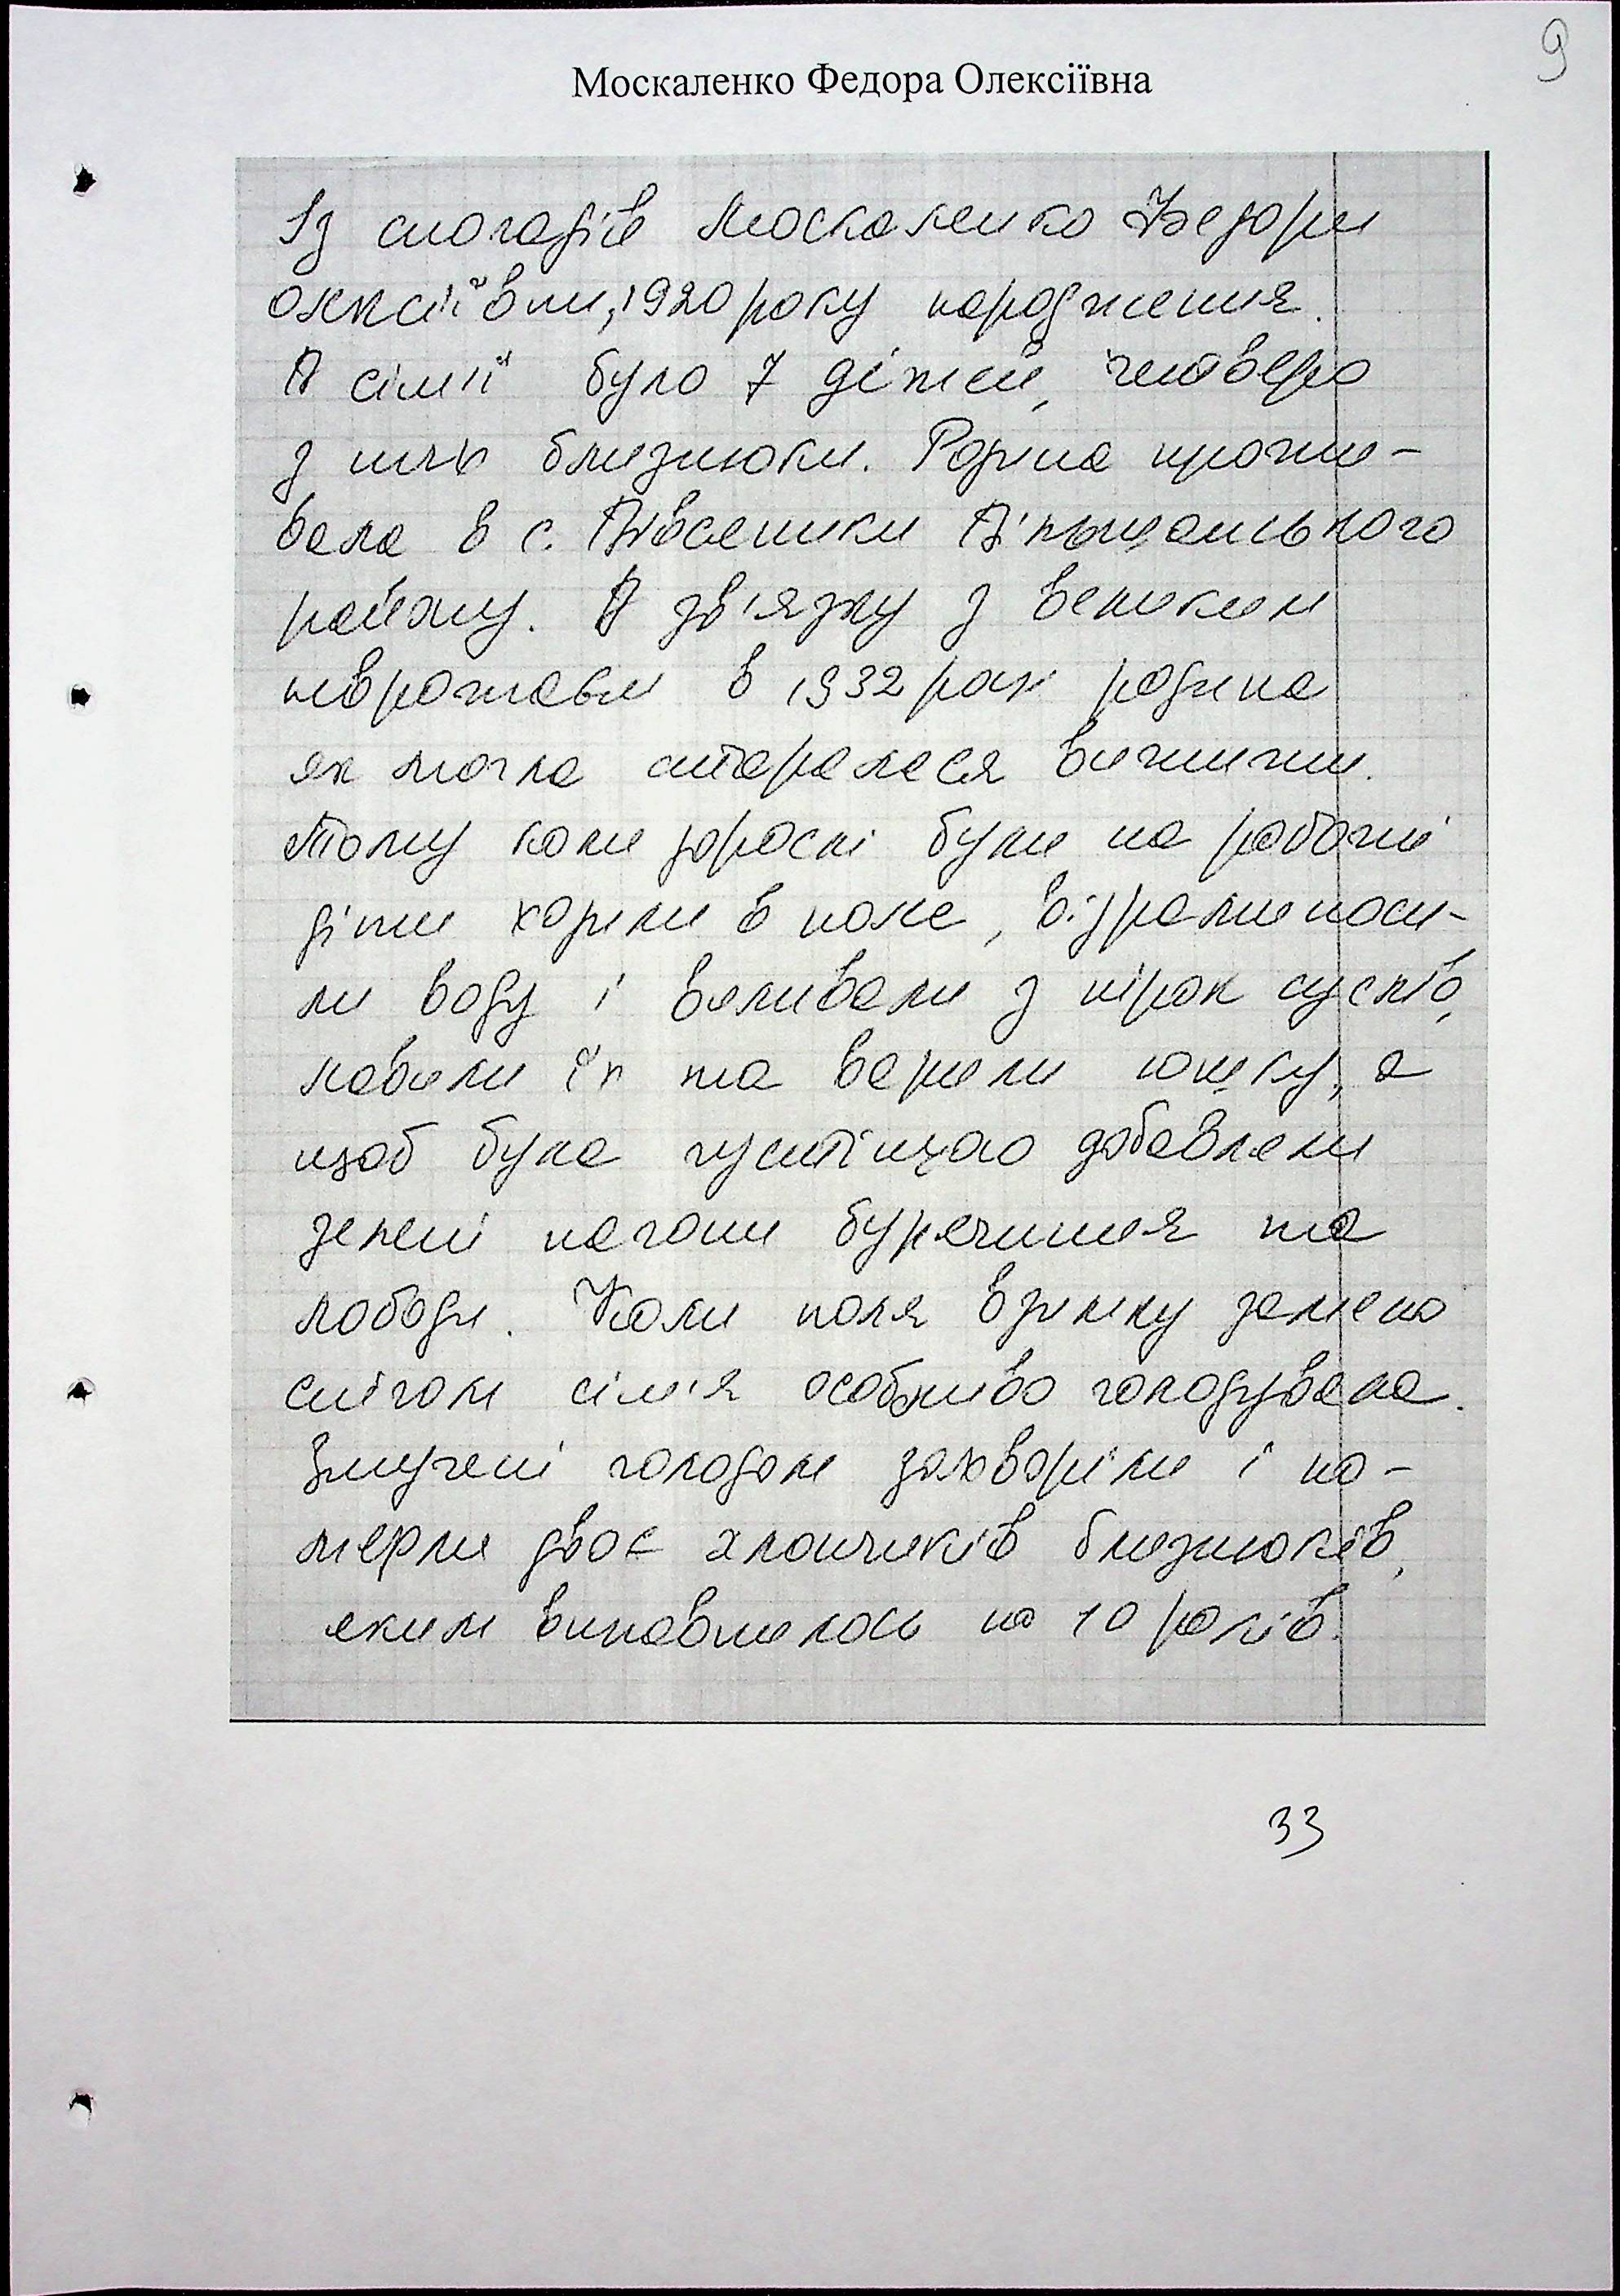 9
Москаленко Федора Олексіївна
Із спогадів Москаленко Федори
Олексіївни, 1920 року народження.
В сім'ї було 7 дітей, четверо
з них близнюки. Родина прожи-
вала в с. Вільшанського
району. В зв'язку з великим
неврожаєм в 1932 році родина
як могла старалася вижити.
Тому коли дорослі були на роботі
діти ходили в поле, відрами носи-
ли воду і виливали з нірок сусліків,
ловили їх та варили юшку, а
щоб була густішою добавляли
зелені пагони бурячиння та
лободи. Коли поля взимку замело
снігом сім'я особливо голодувала.
Змучені голодом захворіли і по-
мерли двоє хлопчиків близнюків,
яким виповнилось по 10 років.
33